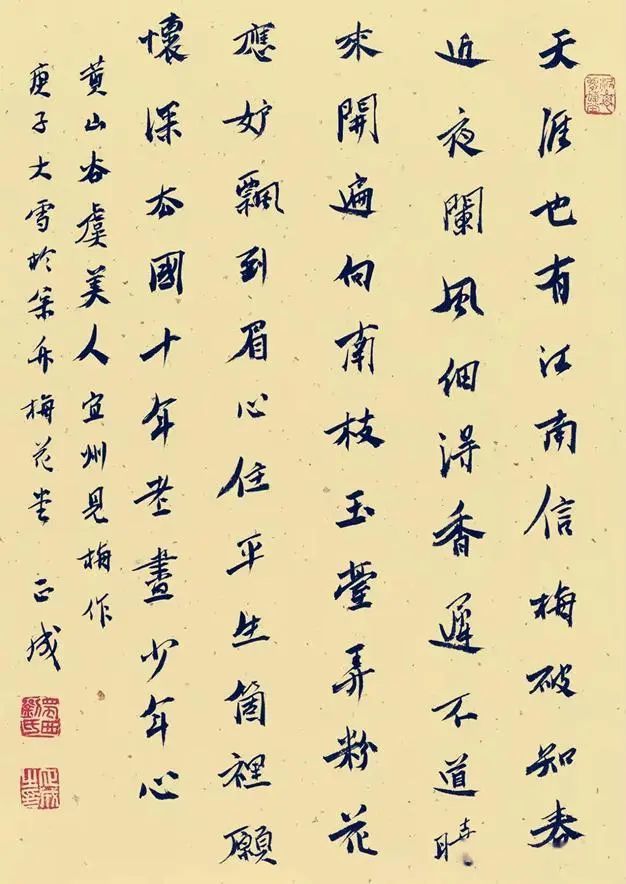 天涯也有江南信梅破知春
近夜闌風細得香遲不道曉
來開遍向南枝玉臺弄粉花
應妒飄到眉心住平生箇裡願
懷深去國十年老盡少年心
黃山谷虞美人宜州見梅作
庚子大雪於梅花堂 正成